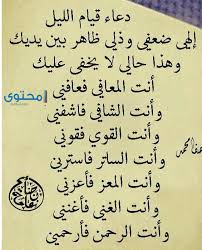 دعاء قيام الليل
إلهي ضعفي وذلي ظاهر بين يديك
وهذا حالي لا يخفى عليك
أنت المعافي فعافني
وأنت الشافي فاشفني
وأنت القوي فقوني
وأنت الساتر فاسترني
وأنت المعز فأعزني
وأنت الغني فأغنني
وأنت الرحمن فأرحمني
محتوى